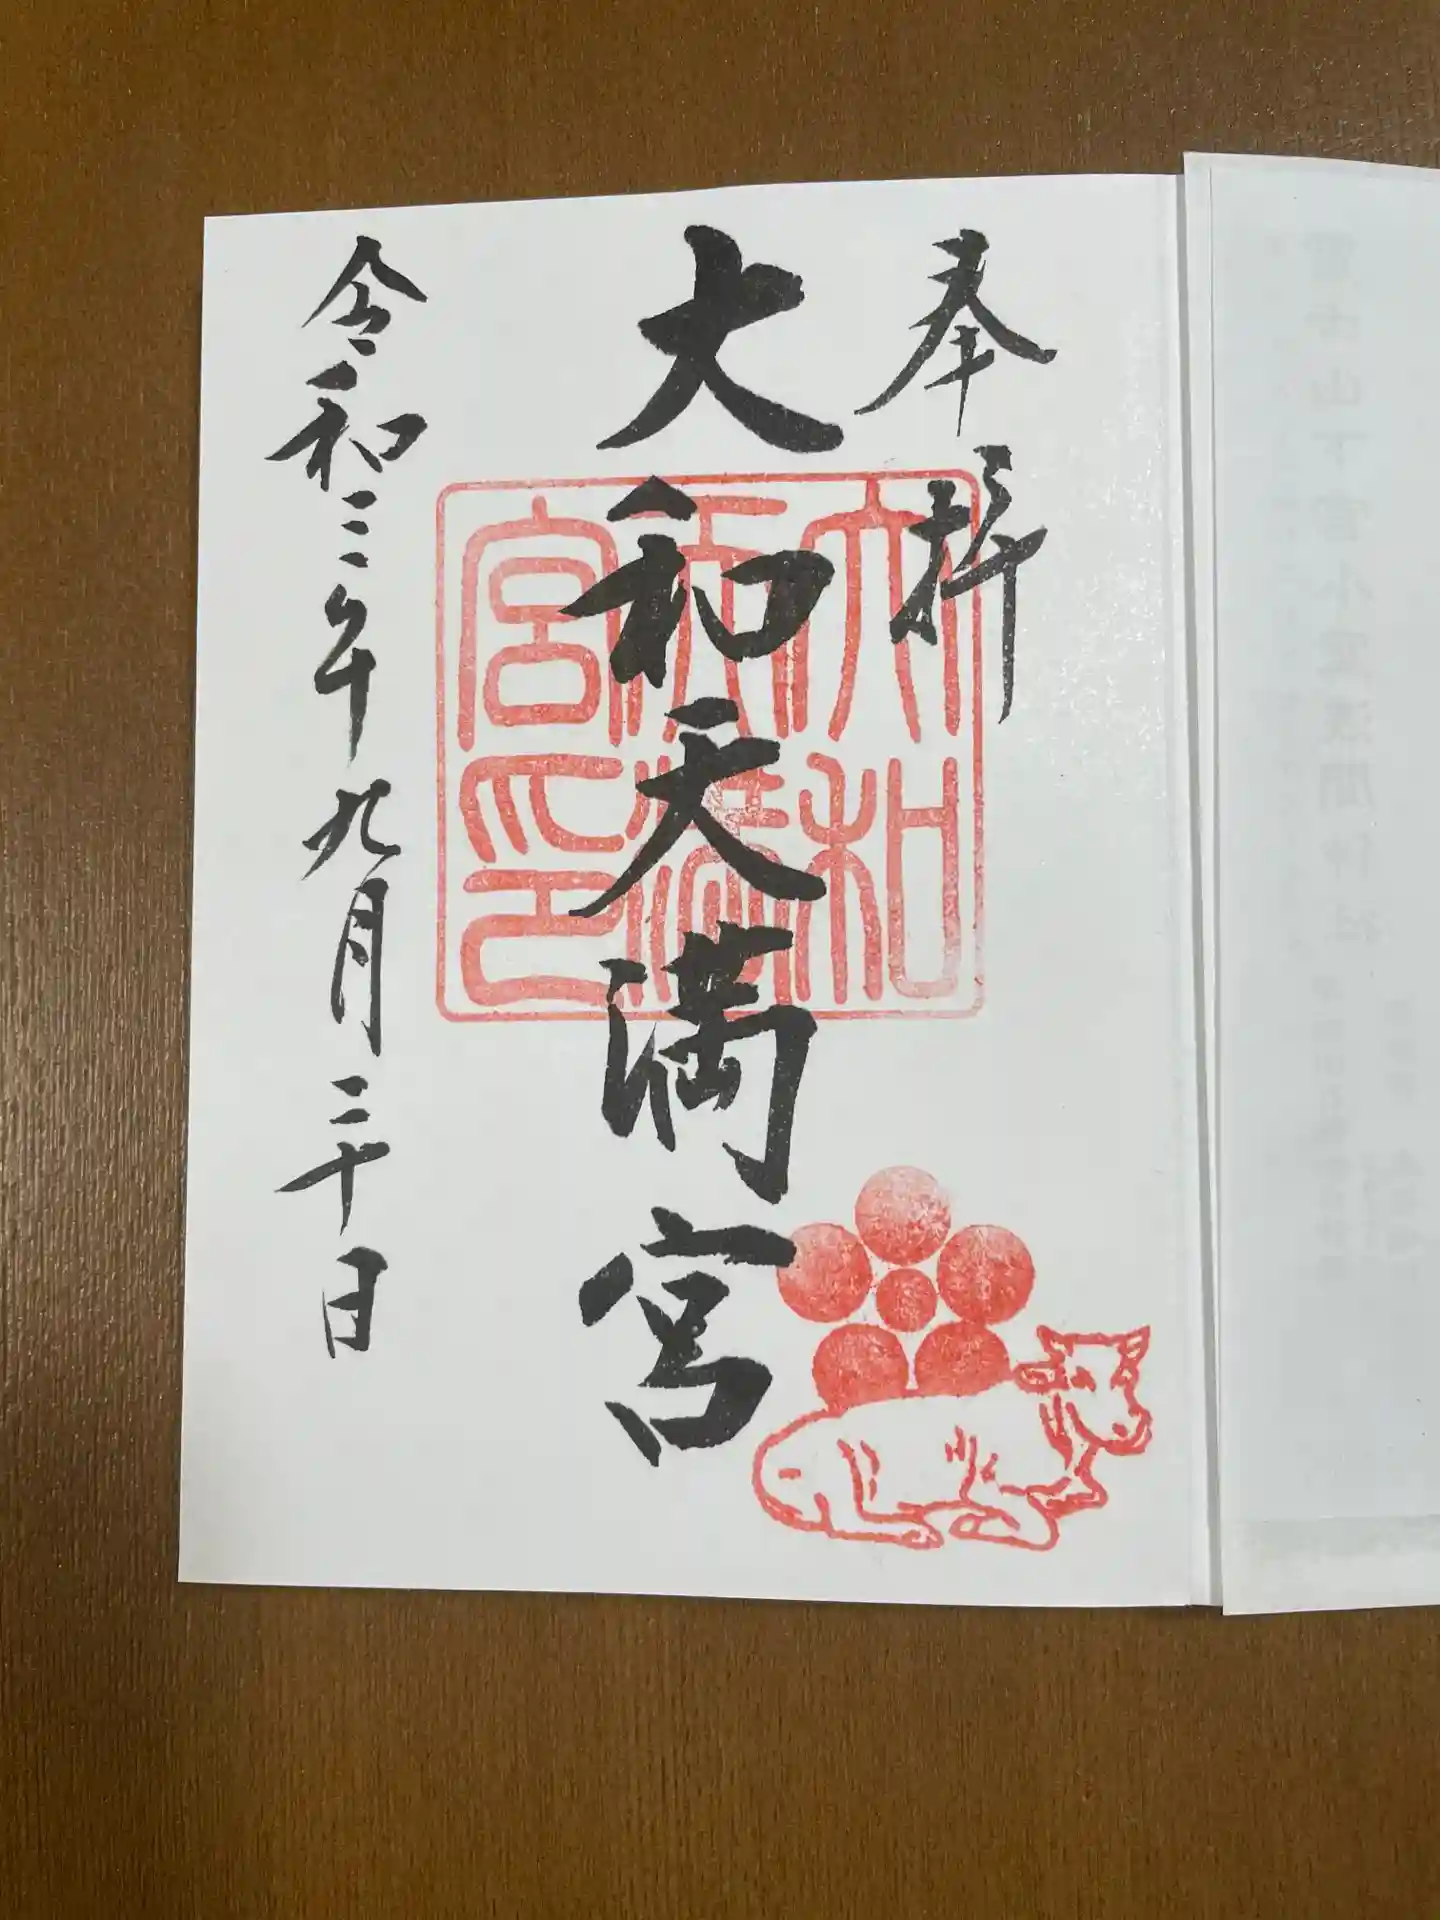 奉拝
大和天満宮
令和三年九月二十日
大和
天満
宮印